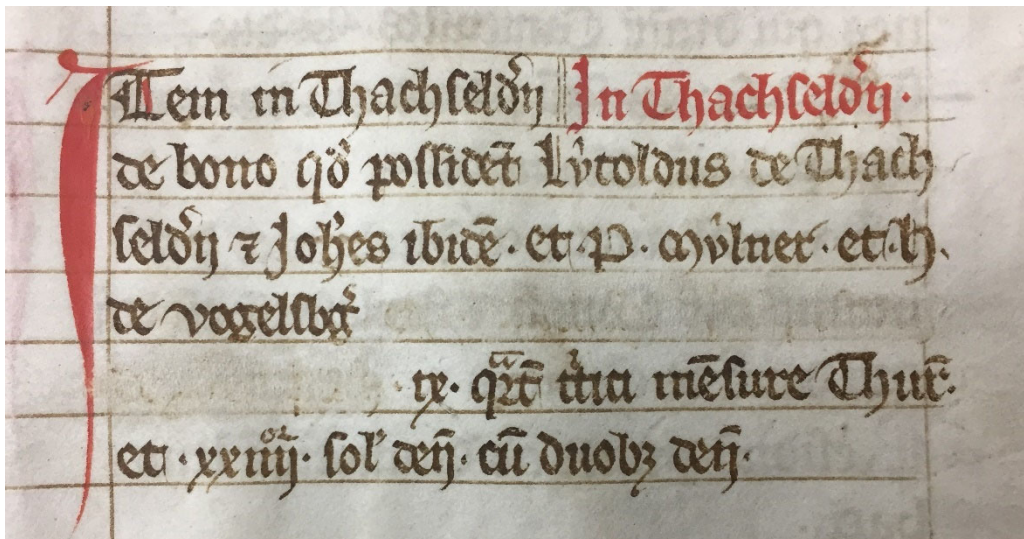 Item in Thachselďn In Thachselďn ·
de bono qđ possidet Lv̊toldus de Thach
selďn ⁊ Joħes ibidē · et · P · Mv̊lner · et · h̄ ·
de vogelsbg̾
· ix · qᷓrt̄ tͥtici mēsure Thur̄ ·
et · xxiiij · sol̾ deñ · cū duobꝫ deñ ·